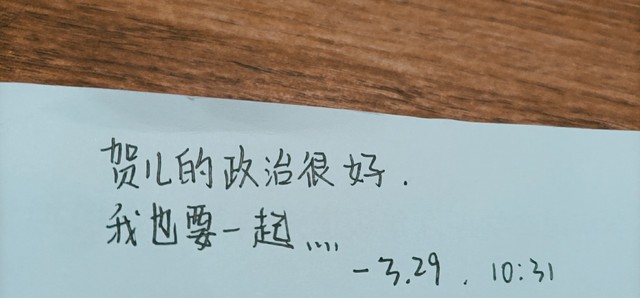 贺儿的政治很好.
我也要一起....
-3.29. 10:31